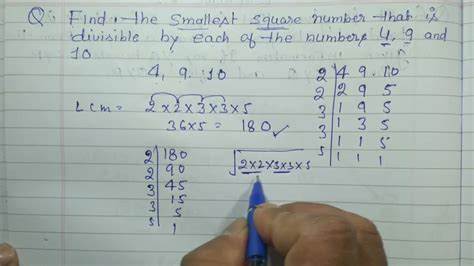 Q: Find the Smallest square number that is
divisible by each of the numbers 4, 9 and
10
4, 9. 10
LCM = 2×2×3×3×5
36×5 = 180 ✓
2 | 4 9. 10
2 | 2 9 5
3 | 1 9 5
3 | 1 3 5
5 | 1 1 5
1 1 1
2 | 180
2 | 90
3 | 45
3 | 15
5 | 5
1
√2×2×3×3×5